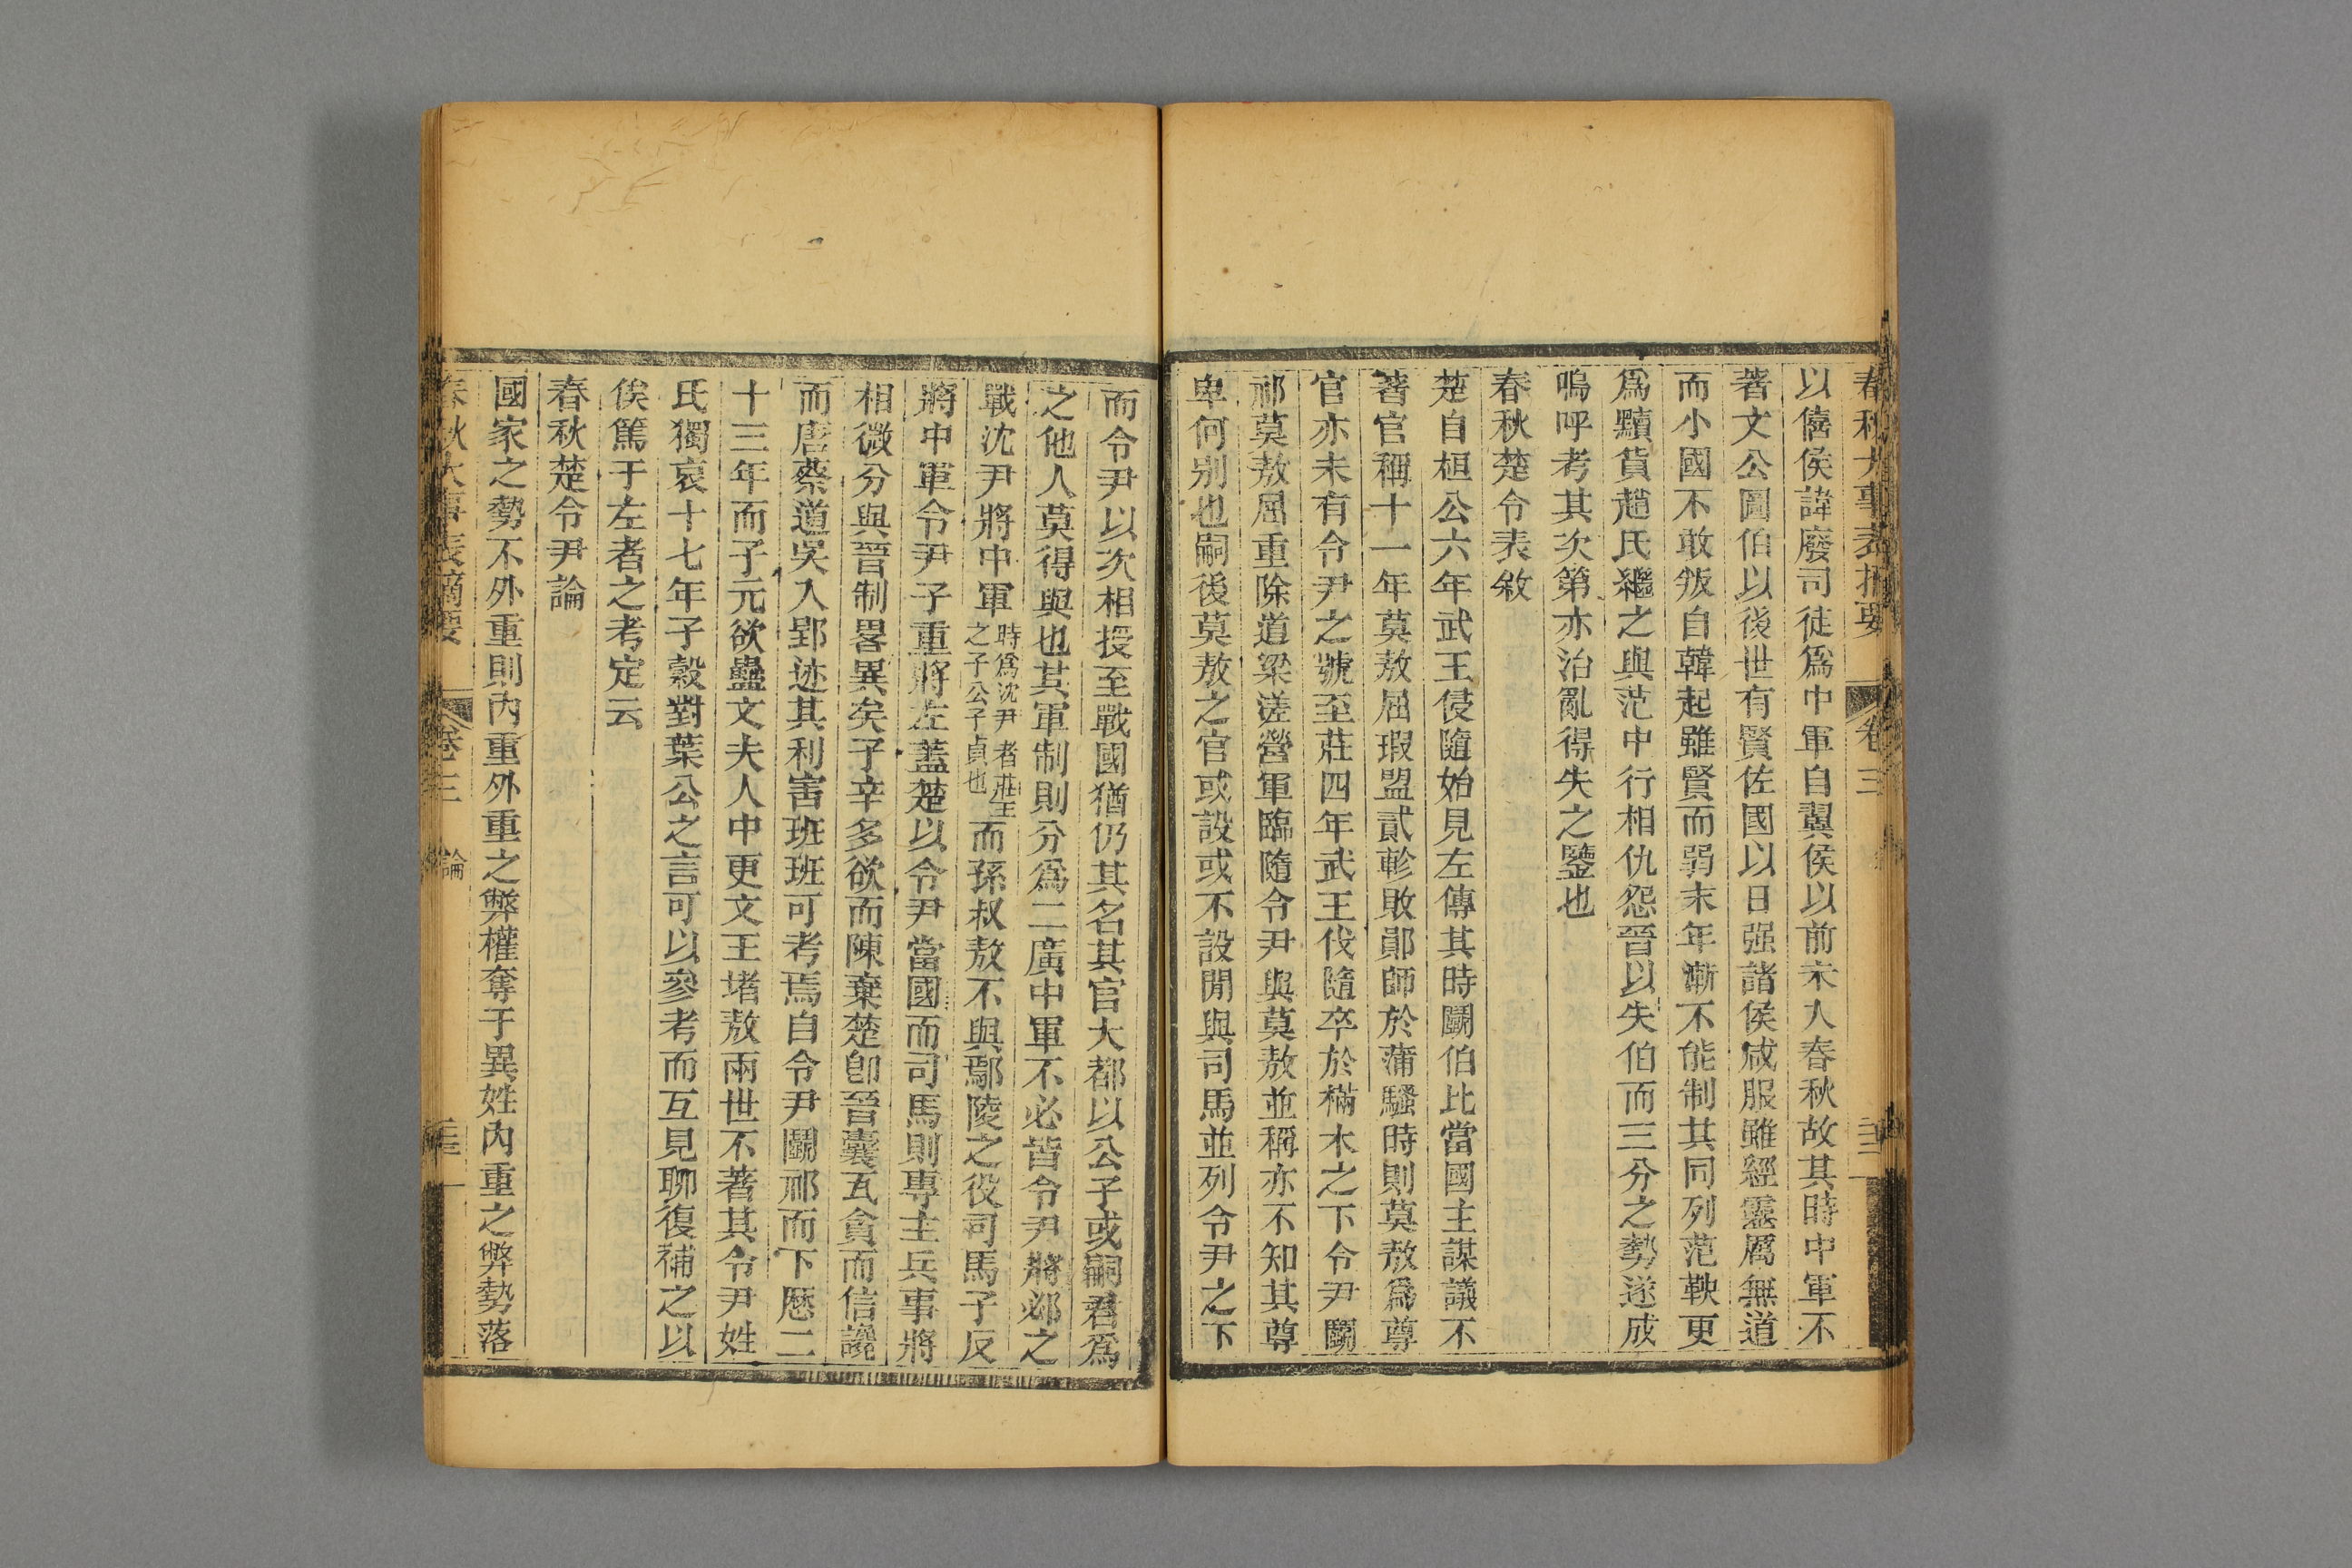 春秋大事表摘要 卷三
以僖侯諱廢司徒爲中軍自翼侯以前未入春秋故其時中軍不
著文公圖伯以後世有賢佐國以日强諸侯咸服雖經靈厲無道
而小國不敢叛自韓起雖賢而弱末年漸不能制其同列范鞅更
爲黷貨趙氏繼之與范中行相仇怨晉以失伯而三分之勢遂成
嗚呼考其次第亦治亂得失之鑒也
春秋楚令表敘
楚自桓公六年武王侵隨始見左傳其時鬬伯比當國主謀議不
著官稱十一年莫敖屈瑕盟貳軫敗鄖師於蒲騷時則莫敖爲尊
官亦未有令尹之號至莊四年武王伐隨卒於樠木之下令尹鬬
祁莫敖屈重除道梁溠營軍臨隨令尹與莫敖並稱亦不知其尊
卑何别也嗣後莫敖之官或設或不設閒與司馬並列令尹之下
而令尹以次相授至戰國猶仍其名其官大都以公子或嗣君爲
之他人莫得與也其軍制則分爲二廣中軍不必皆令尹將邲之
戰沈尹將中軍時爲沈尹者莊王之子公子貞也而孫叔敖不與鄢陵之役司馬子反
將中軍令尹子重將左蓋楚以令尹當國而司馬則專主兵事將
相微分與晉制畧異矣子辛多欲而陳棄楚卽晉囊瓦貪而信讒
而唐蔡道吳入郢迹其利害班班可考焉自令尹鬬祁而下歷二
十三年而子元欲蠱文夫人中更文王堵敖兩世不著其令尹姓
氏獨哀十七年子穀對葉公之言可以參考而互見聊復補之以
俟篤于左者之考定云
春秋楚令尹論
國家之勢不外重則內重外重之弊權奪于異姓內重之弊勢落
春秋大事表摘要 卷三 論